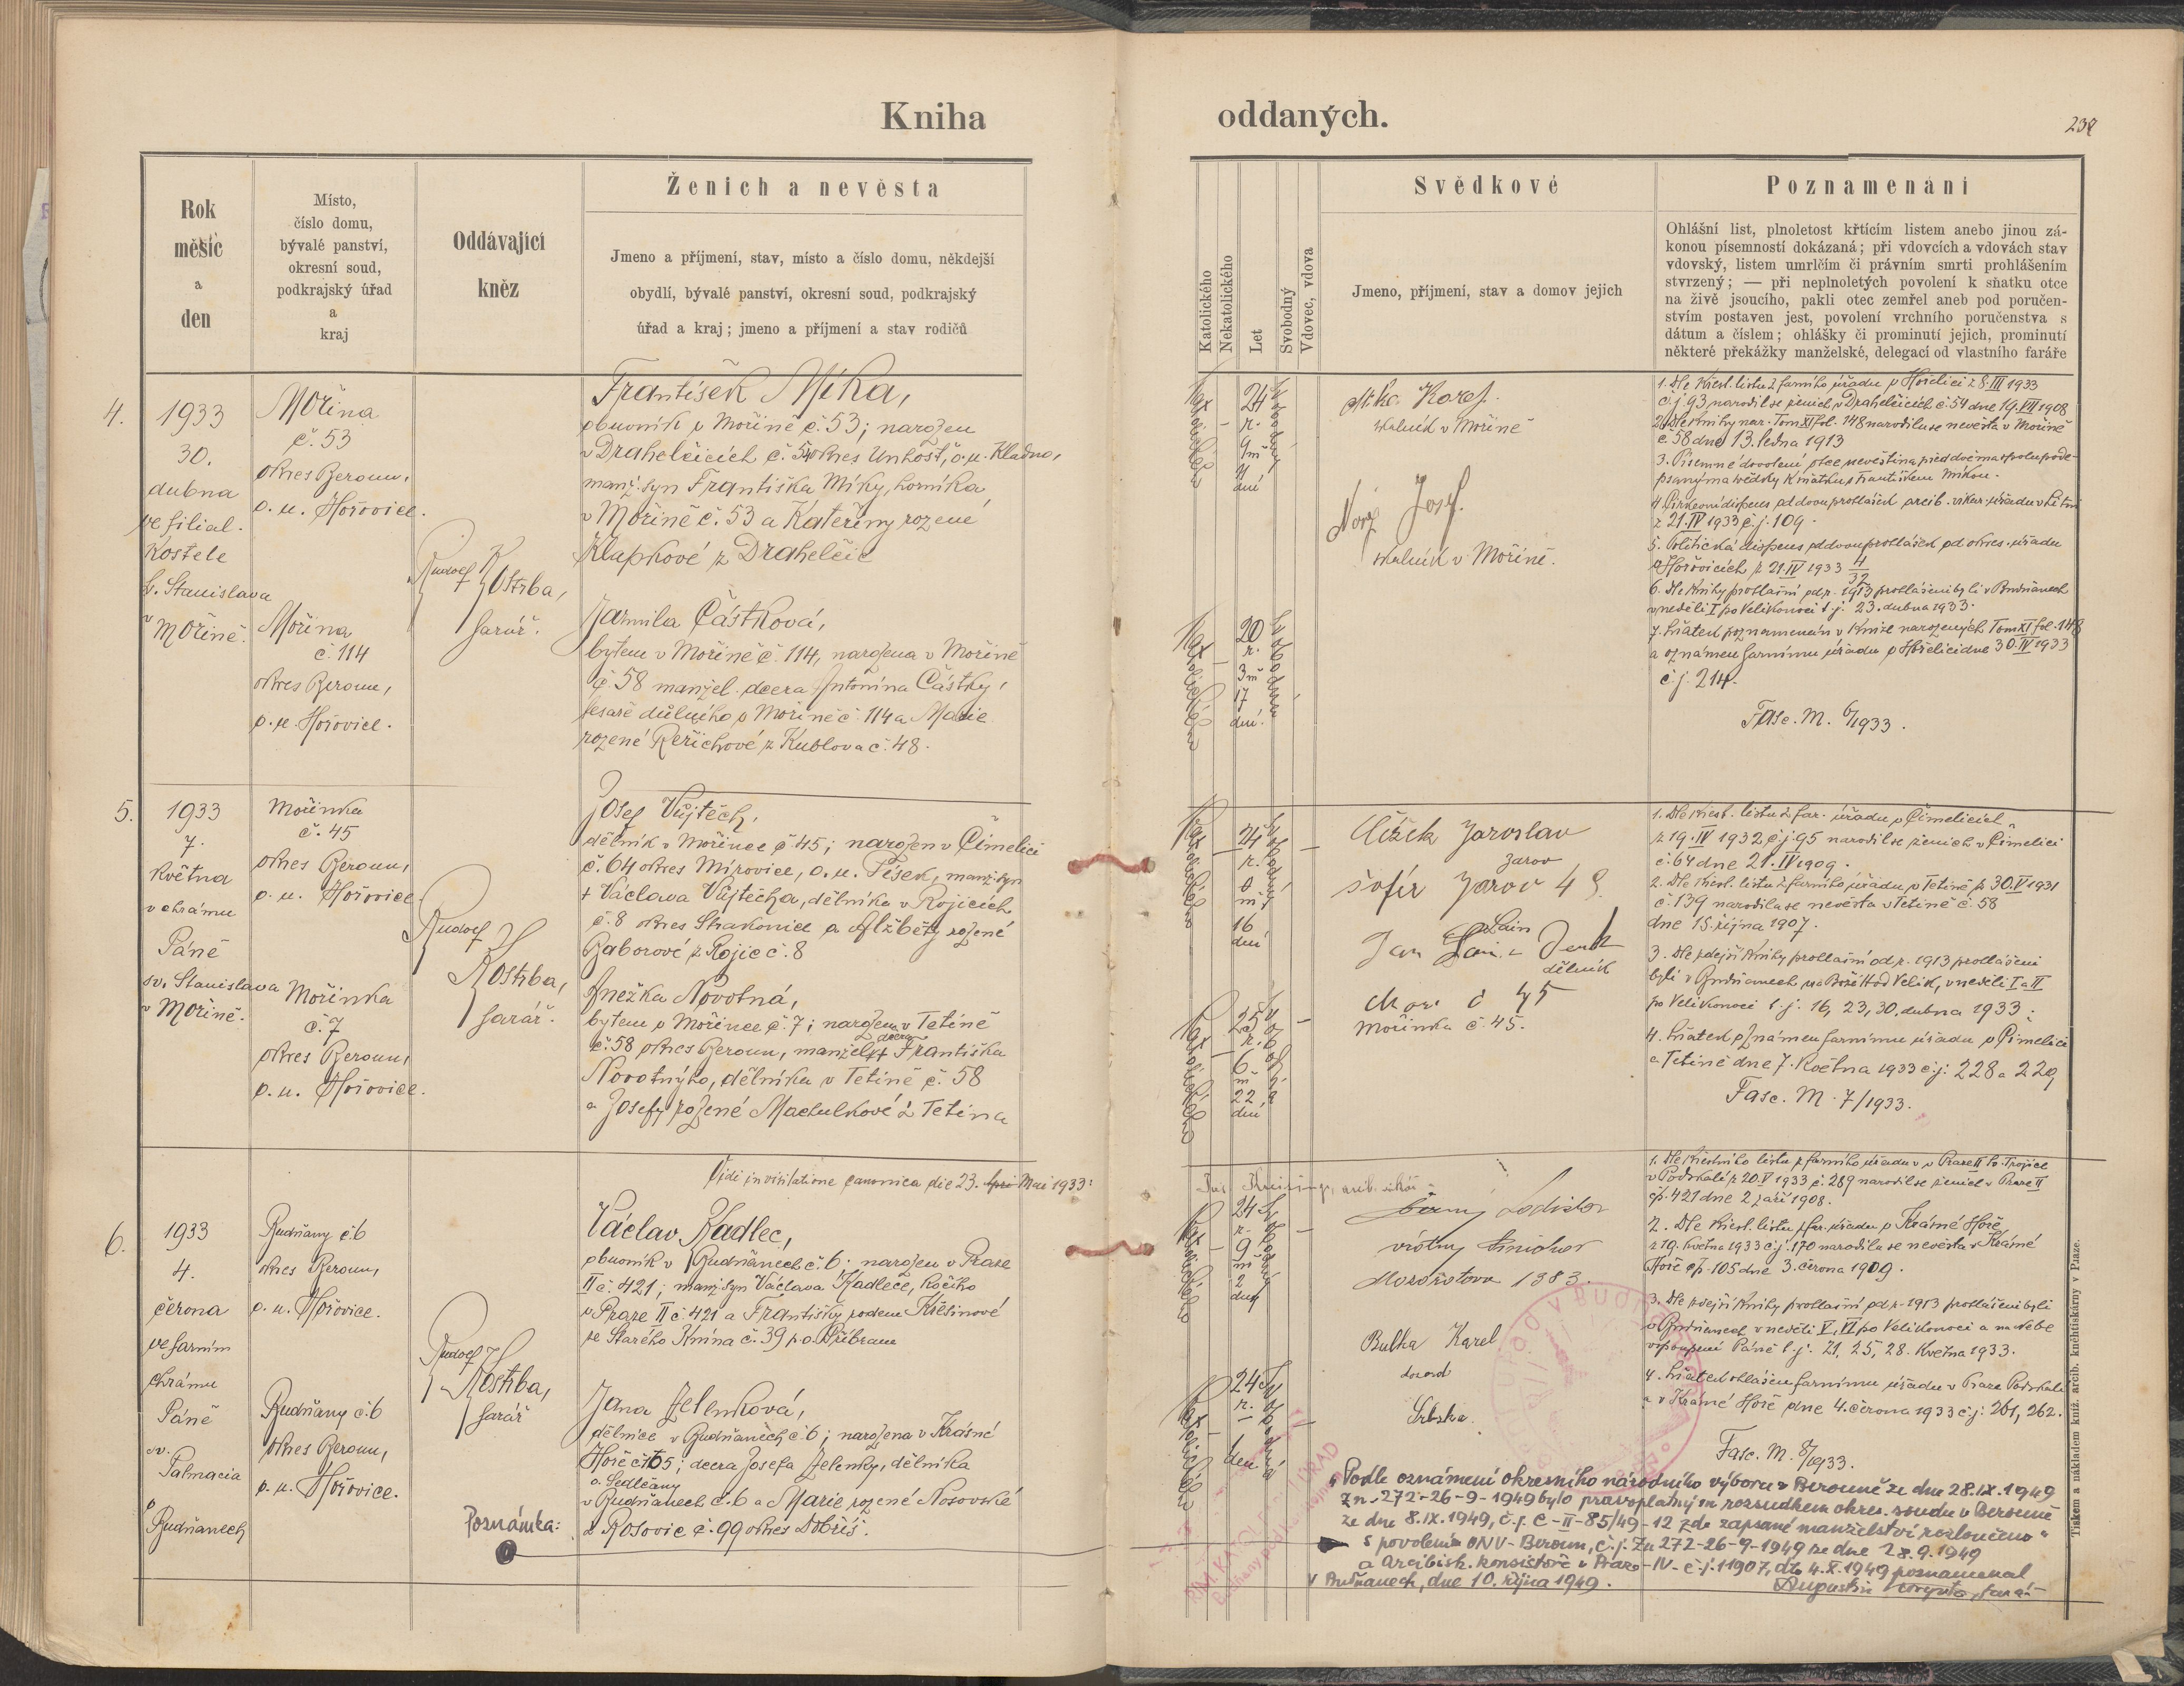 Kniha
oddaných.
Rok
měsíc
a
den
Místo,
číslo domu,
bývalé panství,
okresní soud,
podkrajský úřad
a
kraj
Oddávající
kněz
Ženich a nevěsta
Jmeno a příjmení, stav, místo a číslo domu, někdejší
obydlí, bývalé panství, okresní soud, podkrajský
úřad a kraj; jmeno a příjmení a stav rodičů
Katolického
Nekatolického
Let
Svobodný
Vdovec, vdova
Svědkové
Jmeno, příjmení, stav a domov jejich
Poznamenání
Ohlášní list, plnoletost křticím listem anebo jinou zá-
konou písemností dokázaná; při vdovcích a vdovách stav
vdovský, listem umrlčím či právním smrti prohlášením
stvrzený; — při neplnoletých povolení k sňatku otce
na živě jsoucího, pakli otec zemřel aneb pod poručen-
stvím postaven jest, povolení vrchního poručenstva s
dátum a číslem; ohlášky či prominutí jejich, prominutí
některé překážky manželské, delegací od vlastního faráře
4.
1933
30.
dubna
ve filial.
kostele
sv. Stanislava
v Mořině.
Mořina
č. 53
okres Beroun,
o. u. Hořovice.
Mořina
č. 114
okres Beroun,
o. u. Hořovice.
Rudolf Kostrba,
farář.
František Míka,
obuvník v Mořině č. 53; narozen
v Drahelčicích č. 54 okres Unhošť, o. u. Kladno,
manž. syn Františka Míky, horníka
v Mořině č. 53 a Kateřiny rozené
Klapkové z Drahelčic
Jarmila Částková,
bytem v Mořině č. 114, narozena v Mořině
č. 58 manžel. dcera Antonína Částky,
tesaře důlního v Mořině č. 114 a Marie
rozené Řeřichové z Kublova č. 48.
24
r.
9 m.
11
dní
20
r.
3 m
17
dní.
Míka Karel.
skalník v Mořině
Josef.
skalník v Mořině.
1. Dle křest. listu z farního úřadu v Hořelici z 8. III 1933
č. j. 93, narodil se ženich v Drahelčicích č. 54 dne 19. VII 1908
2. Dle knihy nar. Tom XI fol. 148 narodila se nevěsta v Mořině
č. 58 dne 13. ledna 1913
3. Písemné dovolení otce nevěstina před dvěma spolupode-
psanýma svědky k sňatku s Františkem Míkou.
4. Církevní dispens od dvou prohlášek arcib. vikar. úřadu
z 21. IV 1933 č. j. 109.
5. Politická dispens od dvou prohlášek od okres. úřadu
v Hořovicích z 21. IV 1933 4/32
6. Dle knihy prohlašní od r. 1913 prohlášeni byli v Budňanech
v neděli I po Velikonoci t. j. 23. dubna 1933.
7. Sňatek poznamenán v knize narozených Tom XI fol. 148
a oznámen farnímu úřadu v Hořelici dne 30. IV 1933
č. j. 214.
Fasc. M. 6/1933.
5.
1933
7.
května
v chrámu
Páně
sv. Stanislava
v Mořině.
Mořinka
č. 45
okres Beroun,
o. u. Hořovice
Mořinka
č. 7
okres Beroun,
o. u. Hořovice.
Rudolf
Kostrba,
farář.
Josef Vojtěch,
dělník v Mořince č. 45; narozen v Čimelici
č. 64 okres Mirovice, o. u. Písek, manž. syn
+ Václava Vojtěcha, dělníka v Rojicích
č. 8 okres Strakonice a Alžběty rozené
Gaborové z Rojic č. 8
Anežka Novotná,
bytem v Mořince č. 7; narozena v Tetíně
č. 58 okres Beroun, manžel. dcera + Františka
Novotného, dělníka v Tetíně č. 58
a Josefy rozené Machulkové z Tetína
24
r.
0
m.
16
dní
25
r.
6
m
22
dní
Čížek Jaroslav
Jarov
šofér Jarov 48
Jan
dělník
45
Mořinka č. 45.
1. Dle křest. listu z far. úřadu v Čimelicích
z 19. IV 1932 č. j. 95 narodil se ženich v Čimelici
č. 64 dne 21. IV 1909.
2. Dle křest. listu z farního úřadu v Tetíně z 30. V 1931
č. 139 narodila se nevěsta v Tetíně č. 58
dne 15. října 1907.
3. Dle zdejší knihy prohlašní od r. 1913 prohlášeni
byli v Budňanech na Boží Hod Velik., v neděli I a II
po Velikonoci t. j. 16, 23, 30. dubna 1933;
4. Sňatek oznámen farnímu úřadu v Čimelici
a Tetíně dne 7. května 1933 č. j: 228 a 229
Fasc. M. 7/1933.
Vidi in visitatione canonica die 23. Mai 1933:
6.
1933
4.
června
ve farním
chrámu
Páně
sv.
Palmacia
v
Budňanech
Budňany č. 6
okres Beroun,
o. u. Hořovice.
Budňany č. 6
okres Beroun,
o. u. Hořovice.
Rudolf
Kostrba,
farář
Poznámka:
Václav Kadlec,
obuvník v Budňanech č. 6; narozen v Praze
II č. 421; manž. syn Václava Kadlece, kočího
v Praze II č. 421 a Františky rodem Křešinové
ze Starého Knína č. 39 p. o. Příbram
Jana Jelenková,
dělnice v Budňanech č. 6; narozena v Krásné
Hoře č. 105; dcera Josefa Jelenky, dělníka
o. Sedlčany
v Budňanech č. 6 a Marie rozené Nosovské
z Rosovic č. 99 okres Dobříš.
24
r.
9
m
2
dny
24
r.
den
Ladislav
1383.
Bulka Karel
Srbsko.
1. Dle křestního listu z farního úřadu v Praze II sv. Trojice
v Podskalí z 20. V 1933 č. 289 narodil se ženich v Praze II
čp. 421 dne 2. září 1908.
2. Dle křest. listu z far. úřadu v Krásné Hoře
z 19. května 1933 č. j. 170 narodila se nevěsta v Krásné
Hoře čp. 105 dne 3. června 1909.
3. Dle zdejší knihy prohlašní od r. 1913 prohlášeni byli
v Budňanech v neděli V, VI po Velikonoci a na Nebe
vstoupení Páně t. j. 21, 25, 28. května 1933.
4. Sňatek ohlášen farnímu úřadu v Praze Podskalí
a v Krásné Hoře dne 4. června 1933 č. j: 261, 262.
Fasc. M. 8/1933.
"Podle oznámení okresního národního výboru v Berouně ze dne 28. IX. 1949
Zn-272-26-9-1949 bylo pravoplatným rozsudkem okres. soudu v Berouně
ze dne 8. IX. 1949, č. j. C-II-85/49-12 zde zapsané manželství rozloučeno"
S povolením ONV-Beroun, č. j. Zn 272-26-9-1949 ze dne 28. 9. 1949
a Arcibisk. konsistoře v Praze-IV- č. j. 11907, dto 4. X. 1949 poznamenal
V Budňanech, dne 10. října 1949.
Augustin farář
Tiskem a nákladem kniž. arcib. kněhtiskárny v Praze.